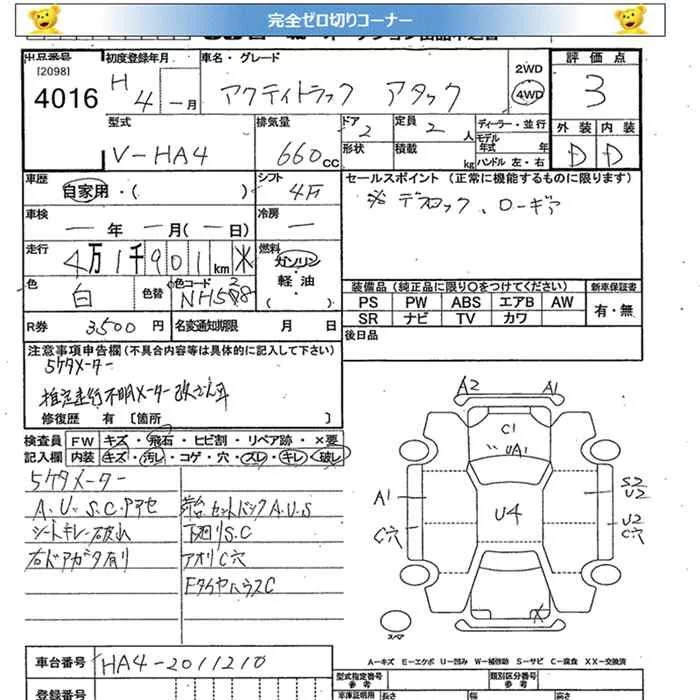 完全ゼロ切りコーナー
出品番号 初度登録年月 車名・グレード 評価点
[2098]
4016
H 4 年 一 月
アクティトラック アタック
2WD
4WD
3
外装 内装
D D
型式 排気量 ドア 2 定員 2 人 ディーラー・並行
モデル年式 年
V-HA4 660 cc 形状 積載 kg ハンドル 左・右
車歴 自家用・( ) シフト 4F
セールスポイント (正常に機能するものに限ります)
※ デフロック、ローギア
車検 一 年 一 月(一 日) 冷房 一
走行 4万1千901 km ※
燃料 ガソリン
軽油
( )
色 白 色替 色コード NH
装備品(純正品に限り○をつけてください) 新車保証書
PS PW ABS エアB AW 有・無
SR ナビ TV カワ
R券 3500 円 名変通知期限 月 日
後日品
注意事項申告欄(不具合内容等は具体的に記入して下さい)
5ケタメーター
推定走行不明メーター改ざん車
修復歴 有 [箇所 ]
検査員 FW キズ・飛石・ヒビ割・リペア跡・×要
記入欄 内装 キズ・汚レ・コゲ・穴・スレ・キレ・破レ
5ケタメーター
A.U.S.C.アセ
シートキレ 破れ
右ドアガタ有り
荷台 セットバック A.U.S
下廻りS.C
アオリC穴
FタイヤハウスC
A2 A1
C1
UA1
A1
C穴
U4
S2
U2
U2
C穴
X
スペア
A-キズ E-エクボ U-凹み W-補修跡 S-サビ C-腐食 XX-交換済
車台番号 HA4-2011210
型式指定番号 参考 類別区分番号 参考
登録番号 長さ 幅 高さ